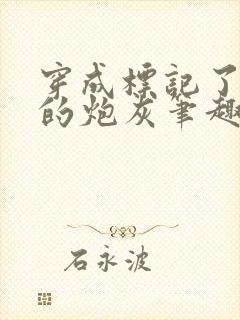 穿成標記了
的炮灰筆趣
石永波